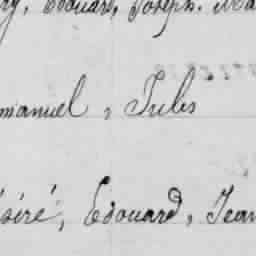 Edouard, Joseph.
manuel, Jules
siré, Edouard, Jean